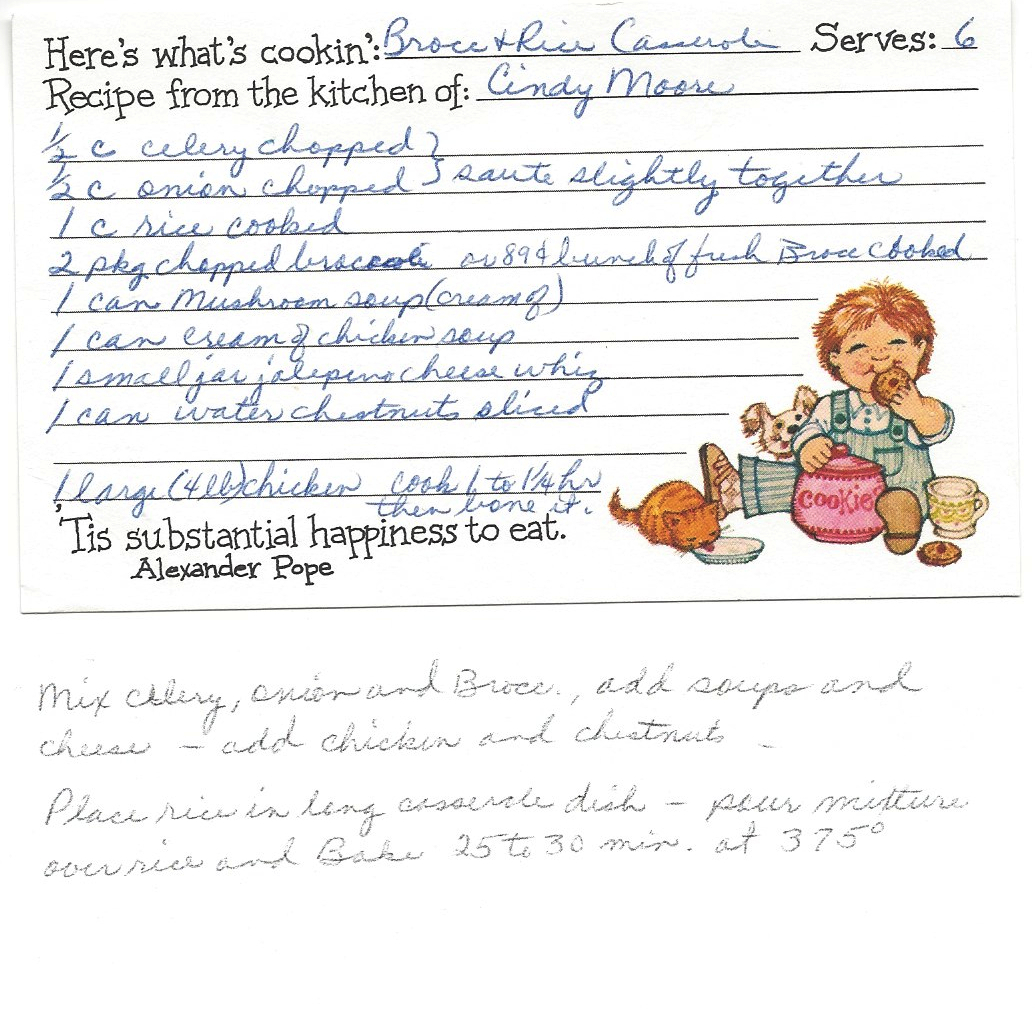 Here's what's cookin': Brocc & Rice Casserole Serves: 6
Recipe from the kitchen of: Cindy Moore
1/2 c celery chopped }
1/2 c onion chopped } saute slightly together
1 c rice cooked
2 pkg chopped broccoli or 89¢ bunch of fresh Brocc cooked
1 can Mushroom soup (cream of)
1 can cream of chicken soup
1 small jar jalepino cheese whiz
1 can water chestnuts sliced
1 large (4 lb) chicken cook 1 to 1 1/4 hr
then bone it.
'Tis substantial happiness to eat.
Alexander Pope
Cookie
Mix celery, onion and Brocc., add soups and
cheese – add chicken and chestnuts –
Place rice in long casserole dish – pour mixture
over rice and Bake 25 to 30 min. at 375°